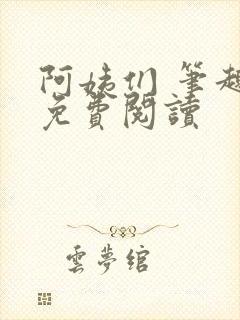 阿姨们 筆趣
免費閱讀
雲夢綰